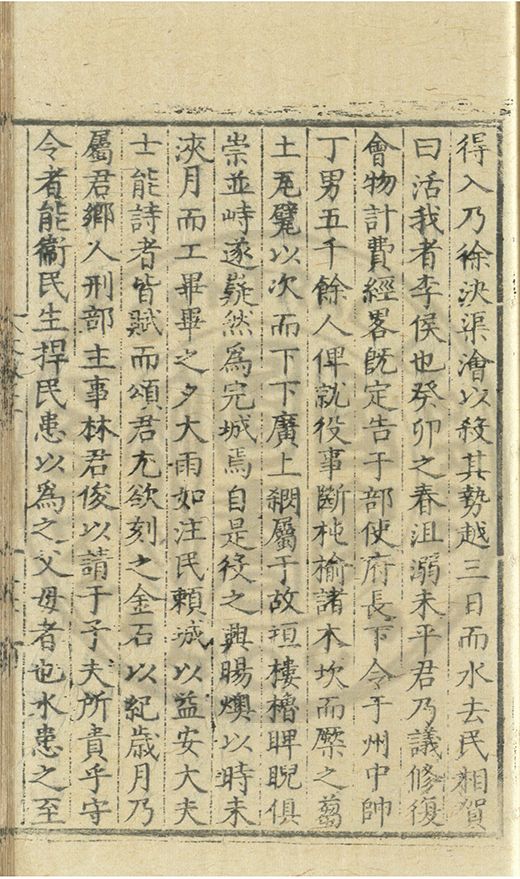 得入乃徐決渠澮以殺其勢越三日而水去民相賀
曰活我者李侯也癸卯之春沮溺未平君乃議修復
會物計費經畧旣定告于部使府長下令于州中帥
丁男五千餘人俾就役事斷杶榆諸木坎而壓之蒭
土瓦甓以次而下下廣上閷屬于故垣樓櫓睥睨俱
崇並峙遂嶷然為完城焉自是役之興暘燠以時未
浹月而工畢畢之夕大雨如注民賴城以益安大夫
士能詩者皆賦而頌君尤欲刻之金石以紀歲月乃
屬君鄉人刑部主事林君俊以請于予夫所貴乎守
令者能衞民生捍民患以為之父母者也水患之至